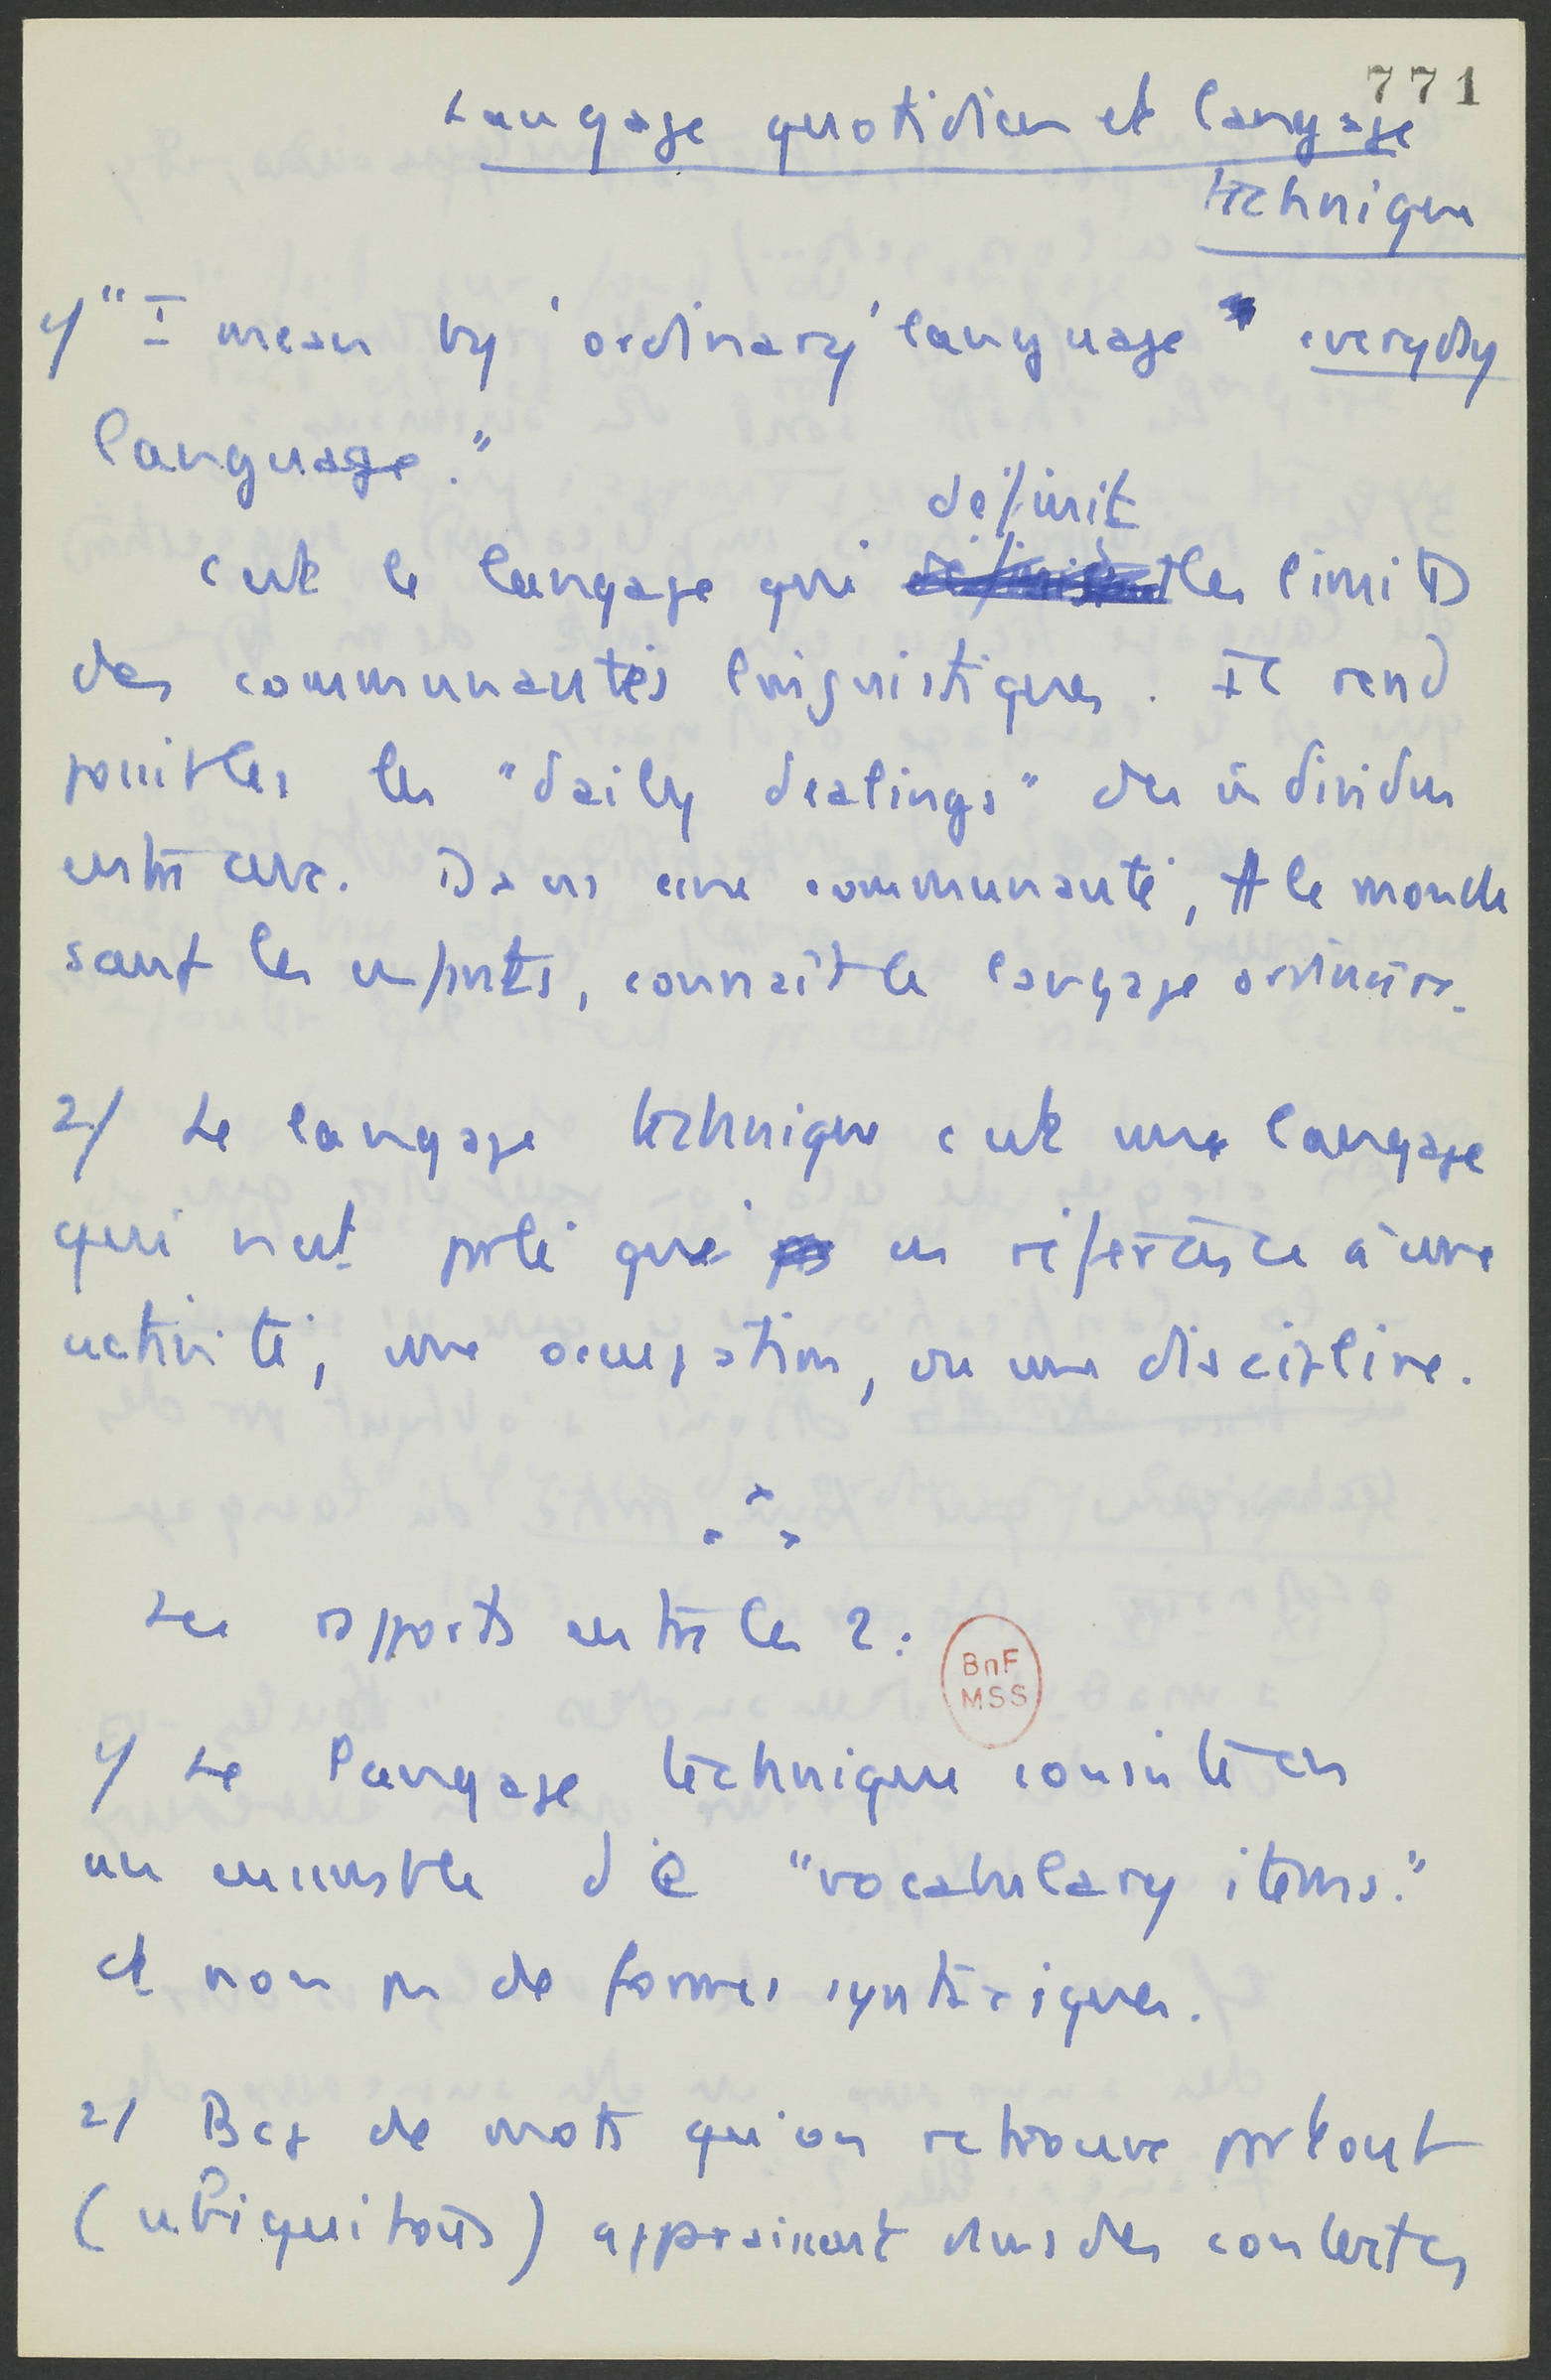 771
Langage quotidien et langage
technique
1/ "I mean by 'ordinary' language everyday
language."
définit
C'est le langage qui les limites
des communautés linguistiques. Il rend
possibles les "daily dealings" des individus
entre eux. Dans une communauté, tt le monde
sauf les enfants, connaît le langage ordinaire.
2/ Le langage technique c'est une langage
qui n'est parlé que en référence à une
activité, une occupation, ou une discipline.
∴
Les rapports entre les 2 :
BnF
MSS
1/ Le langage technique consiste en
un ensemble de "vocabulary items."
et non pas de formes syntaxiques.
2/ Bcp de mots qu'on retrouve partout
(ubiquitous) apparaissent dans des contextes